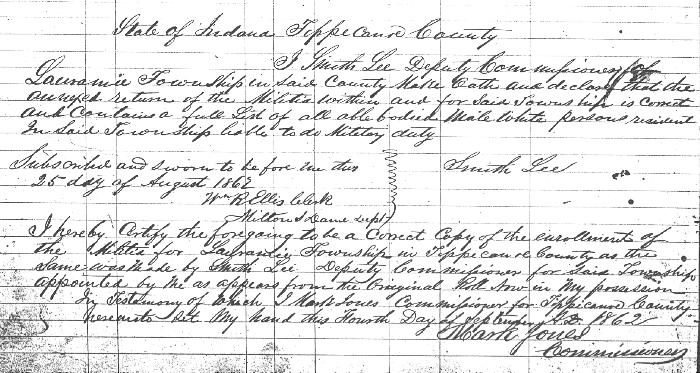 State of Indiana Tippecanoe County
I Smith Lee Deputy Commissioner of
Lauramie Township in said County Make Oath and declare that the
annexed return of the Militia within and for Said Township is Correct
and Contains a full List of all able bodied Male White persons resident
In Said Township liable to do Military duty
Subscribed and sworn to before me this
Smith Lee
25 day of August 1862
Wm R Ellis Clerk
Milton S Dame Dept
I hereby Certify the foregoing to be a Correct Copy of the enrollment of
the Militia for Lauramie Township in Tippecanoe County as the
Same was Made by Smith Lee Deputy Commissioner for Said Township
appointed by me as appears from the Original Roll Now in My possession
In Testimony of Which I Mark Jones Commissioner for Tippecanoe County
hereunto Set My hand this Fourth Day of September A.D. 1862
Mark Jones
Commissioner